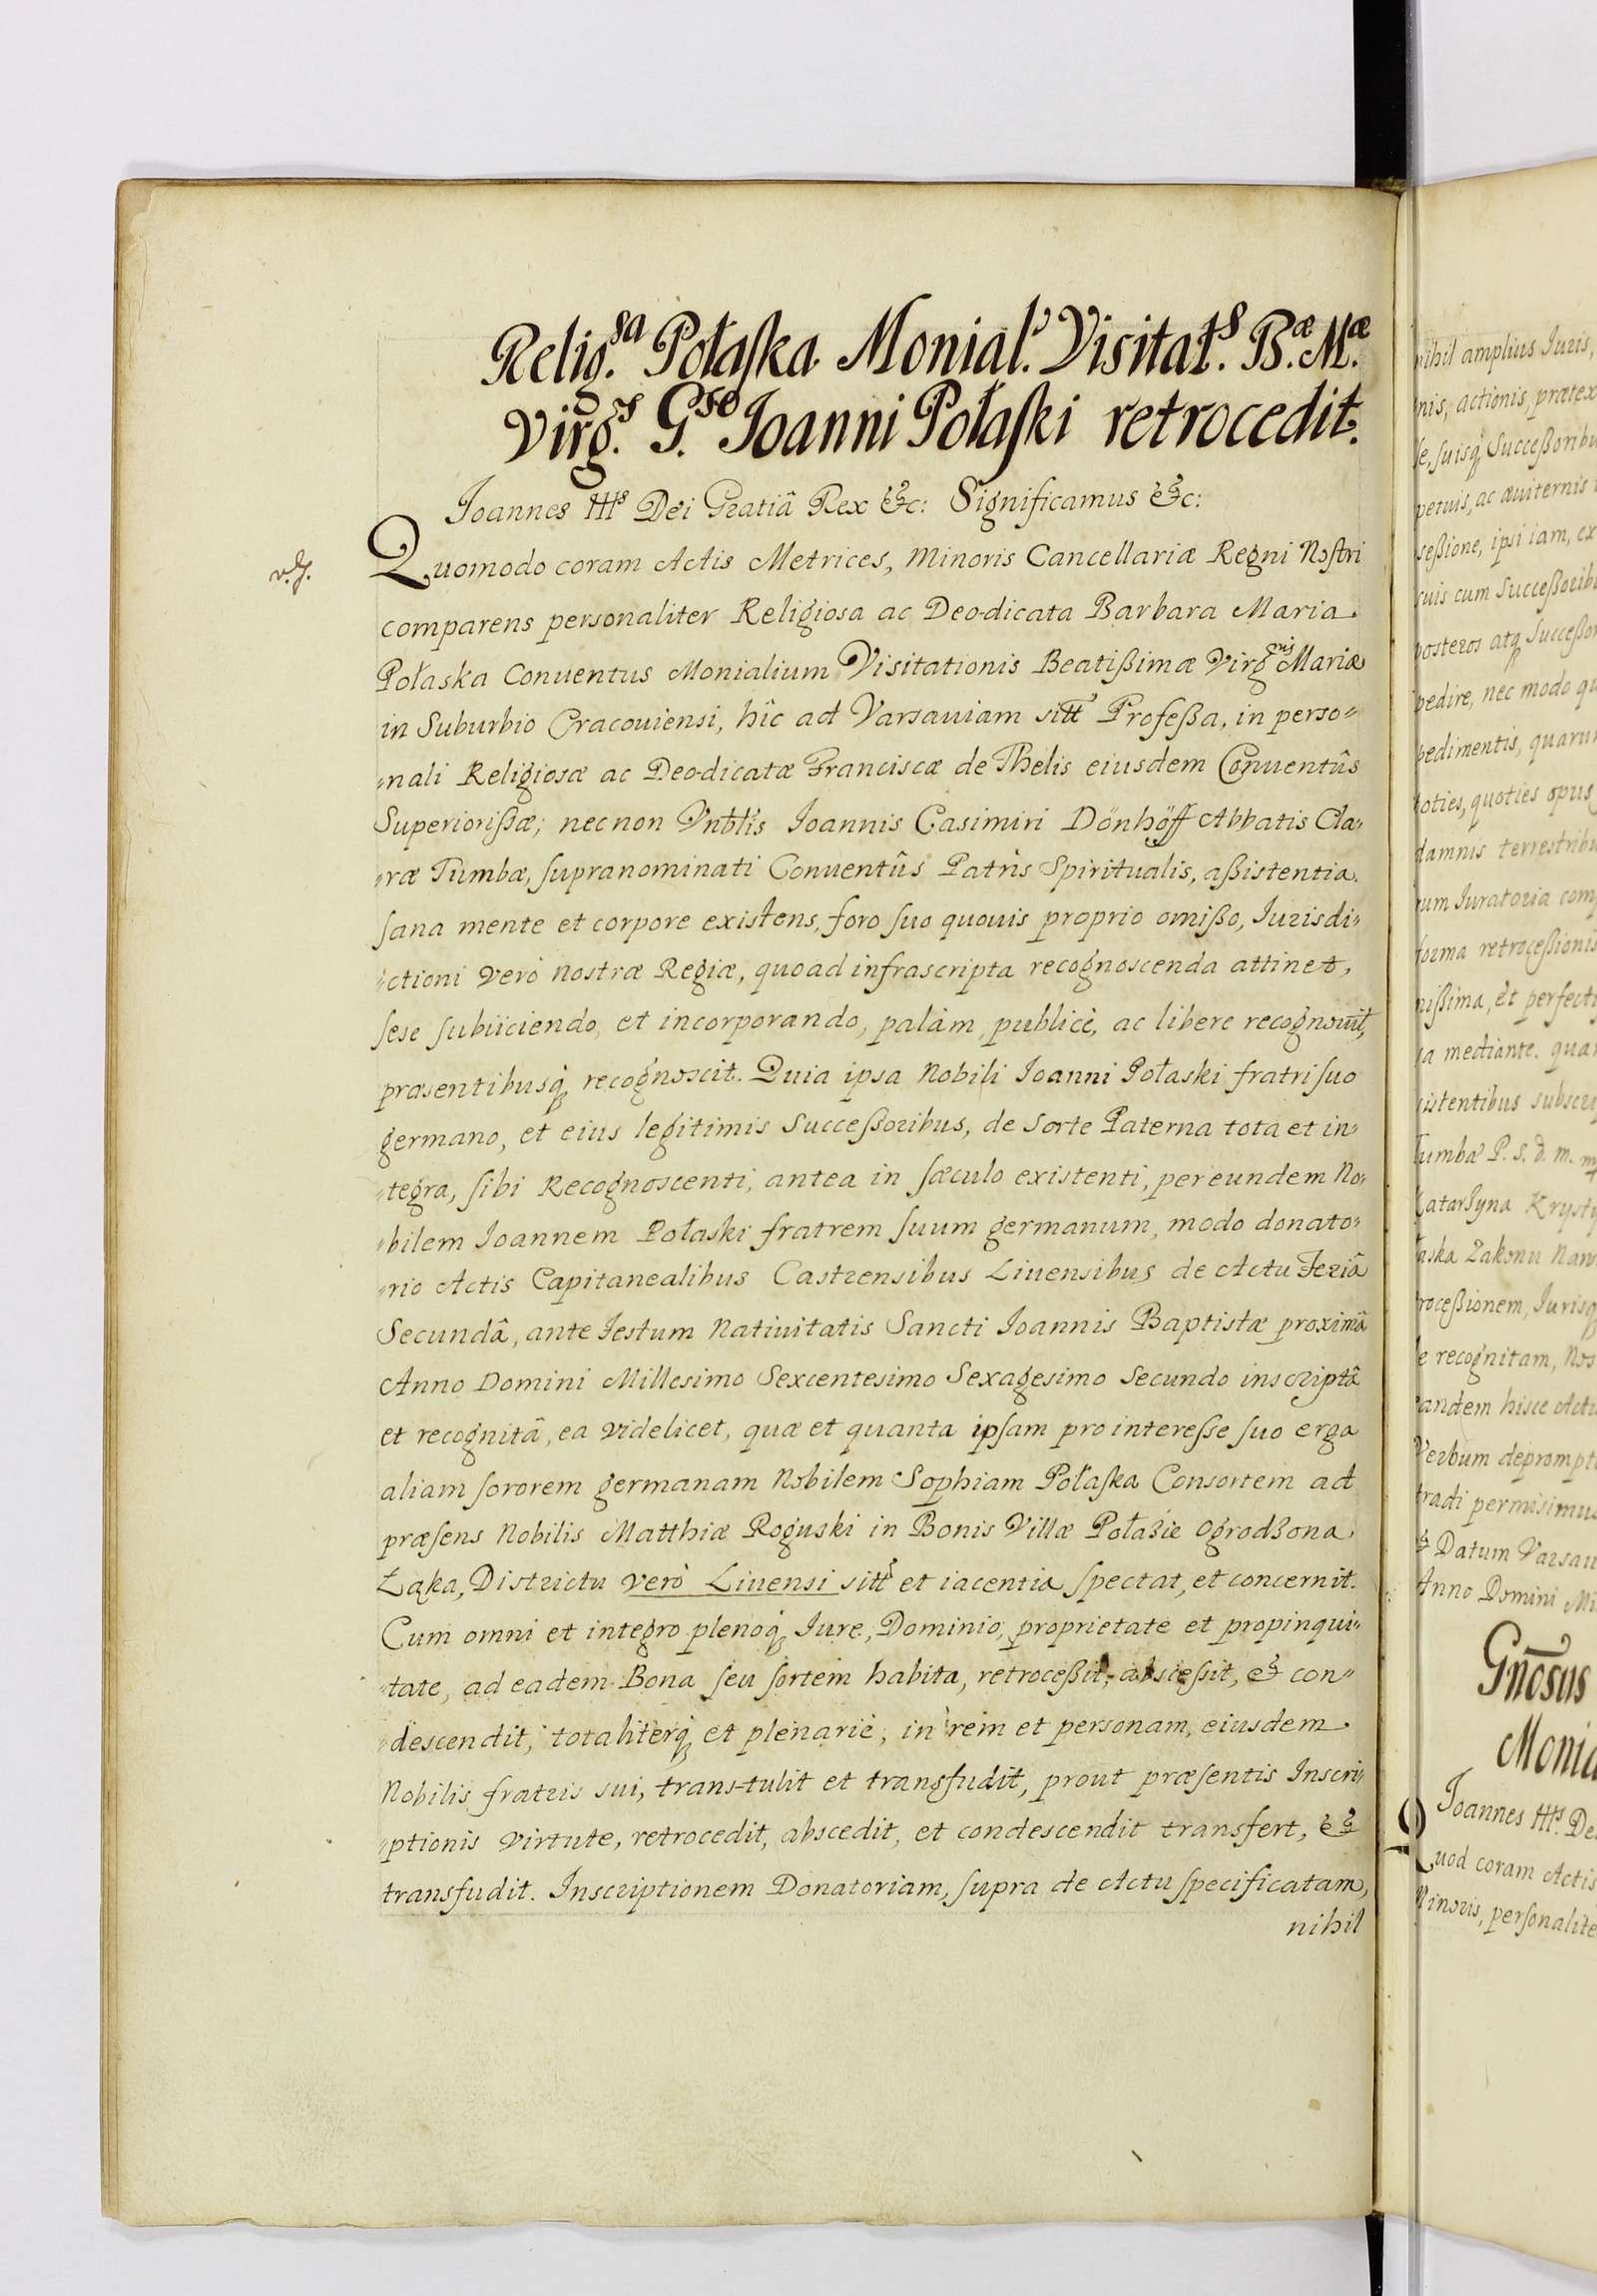 Relig.sa Połaſka Monial. Visitat.s B.æ M.æ
Virg.s G.so Ioanni Połaſki retrocedit.
Joannes IIIs Dei Gratiâ Rex &c: Significamus &c:
Quomodo coram Actis Metrices, Minoris Cancellariæ Regni Noſtri
comparens personaliter Religiosa ac Deo-dicata Barbara Maria
Połaska Conuentus Monialium Visitationis Beatißimæ Virgnis Mariæ
in Suburbio Cracouiensi, hîc ad Varsauiam sitt Profeßa, in perso〃
〃nali Religiosæ ac Deo-dicatæ Franciscæ de Thelis eiusdem Conuentûs
Superiorißæ; necnon Vnblis Ioannis Casimiri Dönhöff Abbatis Cla〃
〃ræ Tumbæ, ſupranominati Conuentûs Patris Spiritualis, aßistentia.
ſana mente et corpore existens, foro ſuo quouis proprio omißo, Iurisdi〃
〃ctioni verò nostræ Regiæ, quoad infrascripta recognoscenda attinet,
ſese ſubiiciendo, et incorporando, palàm, publicè, ac libere recognouit,
præsentibusq recognoscit. Quia ipsa Nobili Ioanni Połaski fratri ſuo
germano, et eius legitimis Succeßoribus, de Sorte Paterna tota et in〃
〃tegra, ſibi Recognoscenti, antea in ſæculo existenti, per eundem No〃
〃bilem Ioannem Połaski fratrem ſuum germanum, modo donato〃
〃rio Actis Capitanealibus Castrensibus Liuensibus de Actu Feriâ
Secundâ, ante Festum Natiuitatis Sancti Ioannis Baptistæ proximâ
Anno Domini Millesimo Sexcentesimo Sexagesimo Secundo inscriptâ
et recognitâ, ea videlicet, quæ et quanta ipſam pro intereſse ſuo erga
aliam ſororem germanam Nobilem Sophiam Połaſka Consortem ad
præſens Nobilis Matthiæ Roguski in Bonis Villæ Połazie Ogrodzona
Łąka, Districtu verò Liuensi sitt et iacentia ſpectat, et concernit.
Cum omni et integro plenoq Iure, Dominio, proprietate et propinqui〃
〃tate, ad eadem Bona ſeu ſortem habita, retroceßit, absceſsit, & con〃
〃descendit, totaliterq et plenariè, in rem et personam, eiusdem
Nobilis fratris sui, trans-tulit et transfudit, prout præſentis Inscri〃
〃ptionis virtute, retrocedit, abscedit, et condescendit transfert, &
transfudit. Inscriptionem Donatoriam, ſupra de Actu ſpecificatam,
nihil
nihil amplius Iuris,
nis, actionis, prætex
ſe, ſuisq Succeßoribu
petuis, ac æuiternis
seßione, ipsi iam, ex
suis cum Succeßoribu
posteros atq Succeßor
pedire, nec modo qu
pedimentis, quarum
toties, quoties opus
damnis terrestribu
um Iuratoria comp
forma retroceßionis
nißima, et perfecti
ia mediante. quam
sistentibus subscri
Tumbæ P. s. d. m.
Katarzyna Krysty
aska Zakonu Naw
troceßionem, Iurisq
e recognitam, Nos
eandem hisce Actis
Verbum deprompt
tradi permisimus
& Datum Varsau
Anno Domini Mi
Gnosus
Monia
Joannes IIIs. De
Quod coram Actis
Minoris, perſonalite